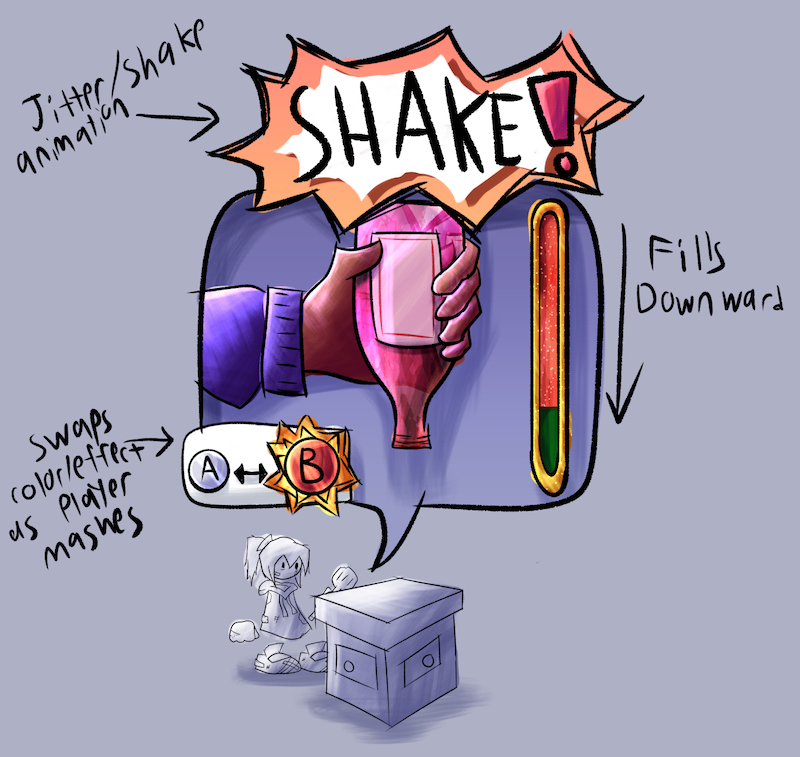 Jitter/Shake
animation
SHAKE!
Fills
Downward
Swaps
color/effect
as Player
mashes
A B